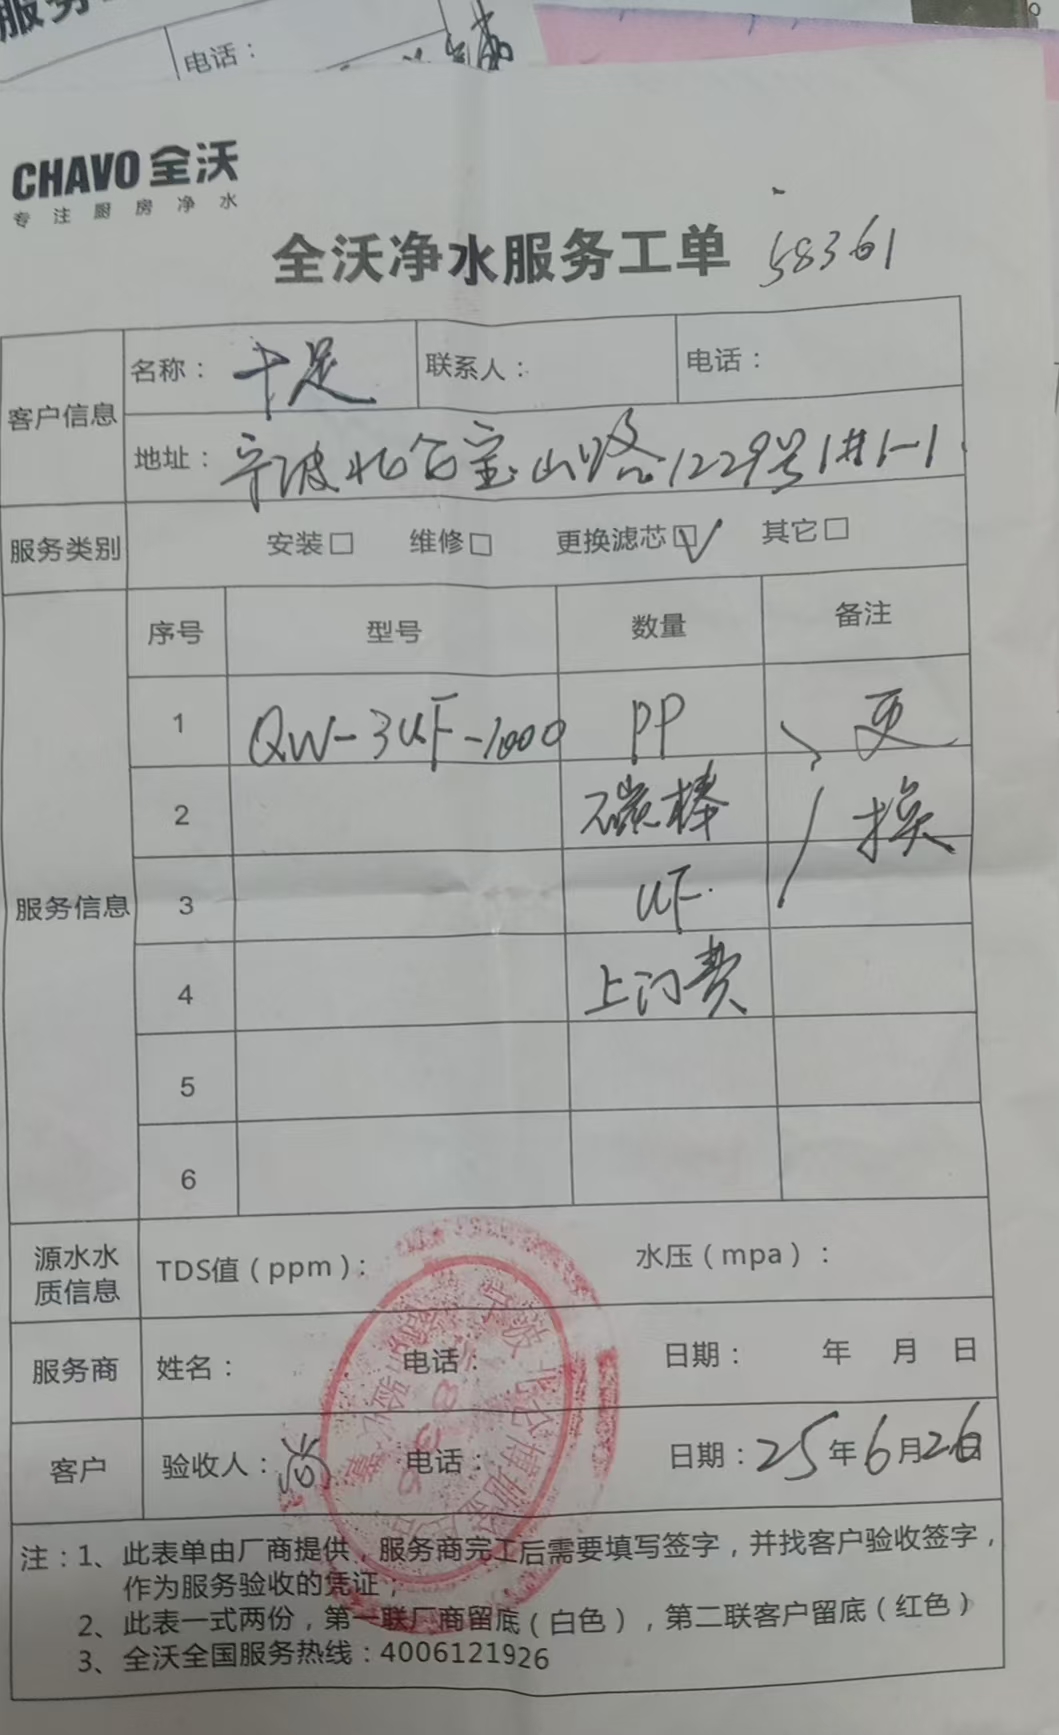 服务
电话：
CHAVO 全沃
专注厨房净水
全沃净水服务工单 58361
客户信息
名称：十足 联系人： 电话：
地址：宁波北仑宝山路1229号1#1-1
服务类别 安装□ 维修□ 更换滤芯☑ 其它□
服务信息
序号 型号 数量 备注
1 QW-3UF-1000 PP 更
2 碳棒 换
3 UF
4 上门费
5
6
源水水质信息 TDS值（ppm）： 水压（mpa）：
服务商 姓名： 电话： 日期： 年 月 日
客户 验收人： 电话： 日期：25年6月26日
注：1、此表单由厂商提供，服务商完工后需要填写签字，并找客户验收签字，
作为服务验收的凭证；
2、此表一式两份，第一联厂商留底（白色），第二联客户留底（红色）
3、全沃全国服务热线：4006121926
宁波北仑博地